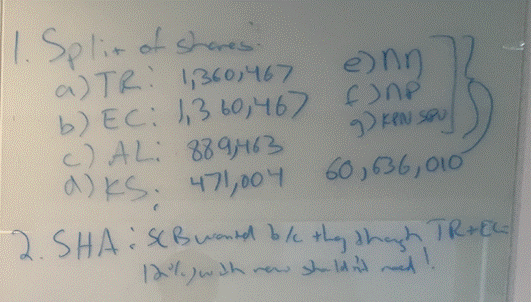 1. Split of shares:
a) TR: 1,360,467
b) EC: 1,360,467
c) AL: 889,463
d) KS: 471,004
e) NN
f) NP
g) KPN SPV
60,636,010
2. SHA: SCB wanted b/c they though TR+EC=
12%, with new shouldn't need!